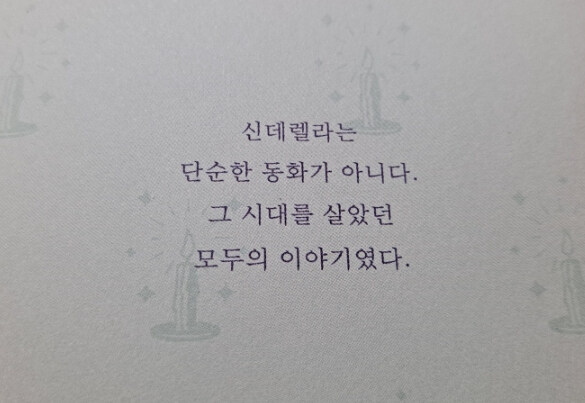 신데렐라는
단순한 동화가 아니다.
그 시대를 살았던
모두의 이야기였다.